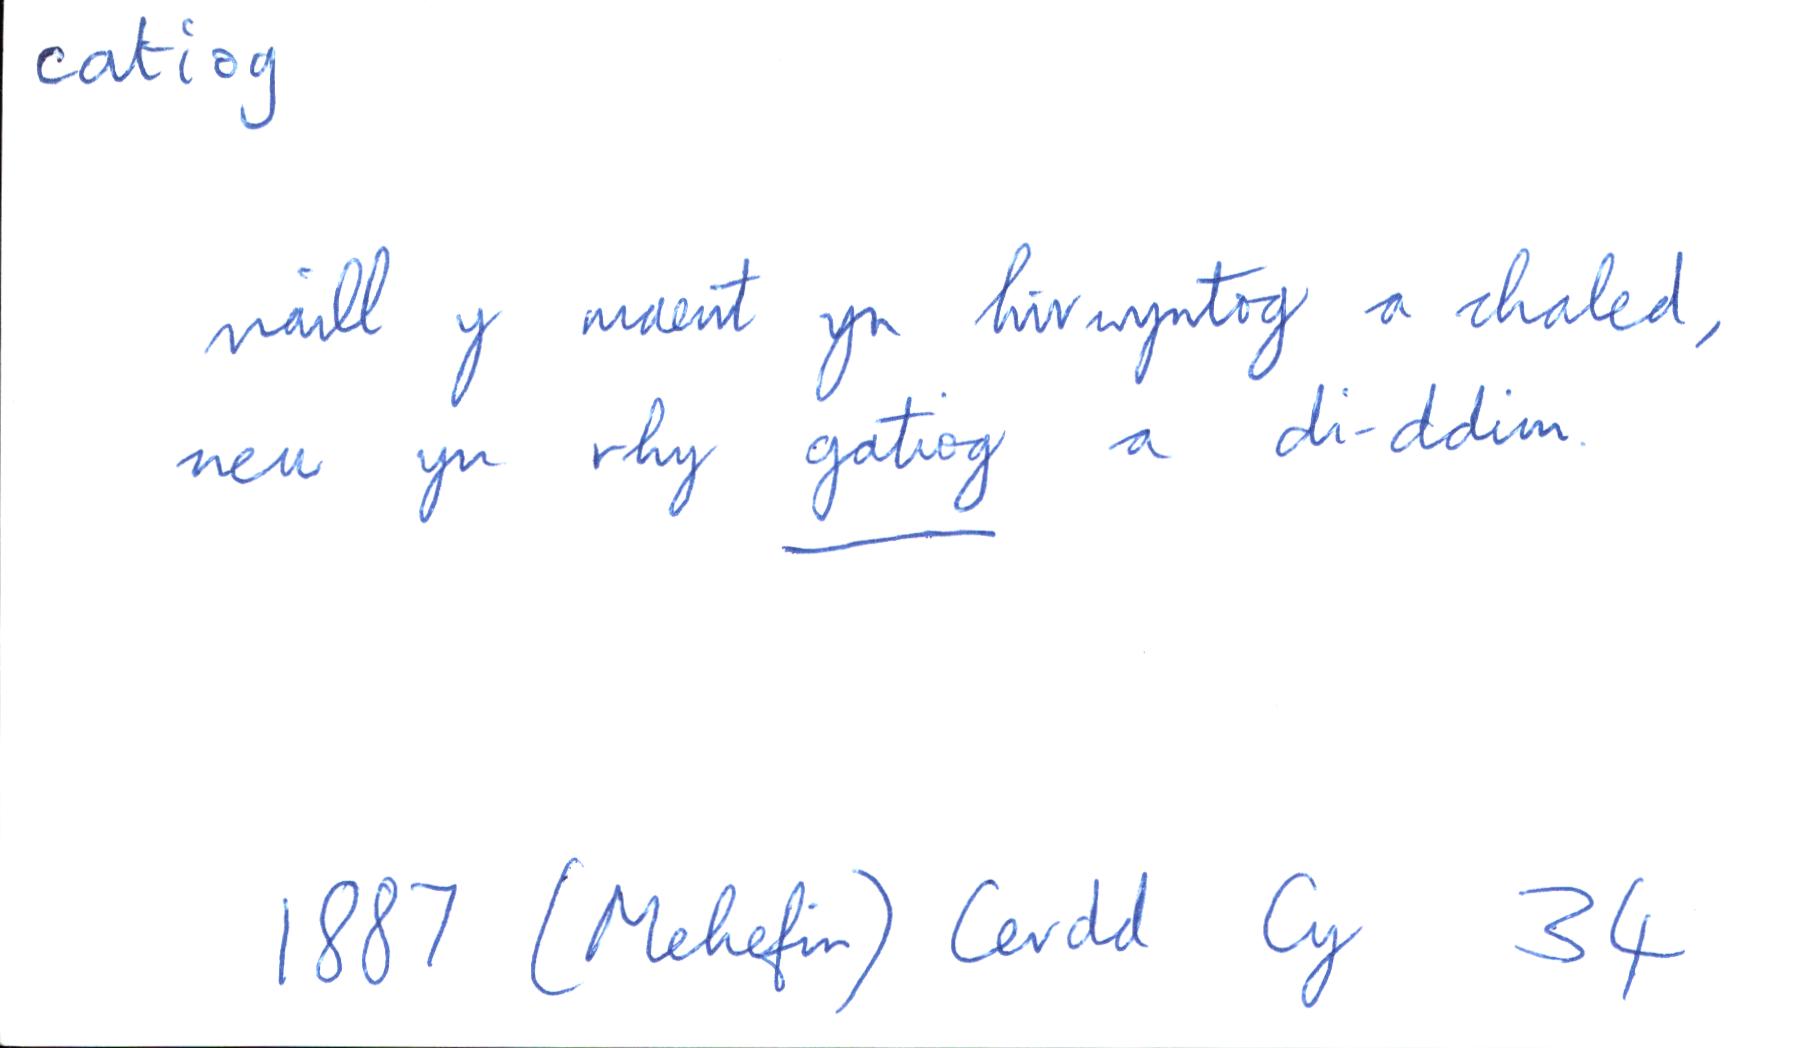 catiog
naill y maent yn hirwyntog a chaled,
neu yn rhy gatiog a di-ddim.
1887 (Mehefin) Cerdd Cy 34